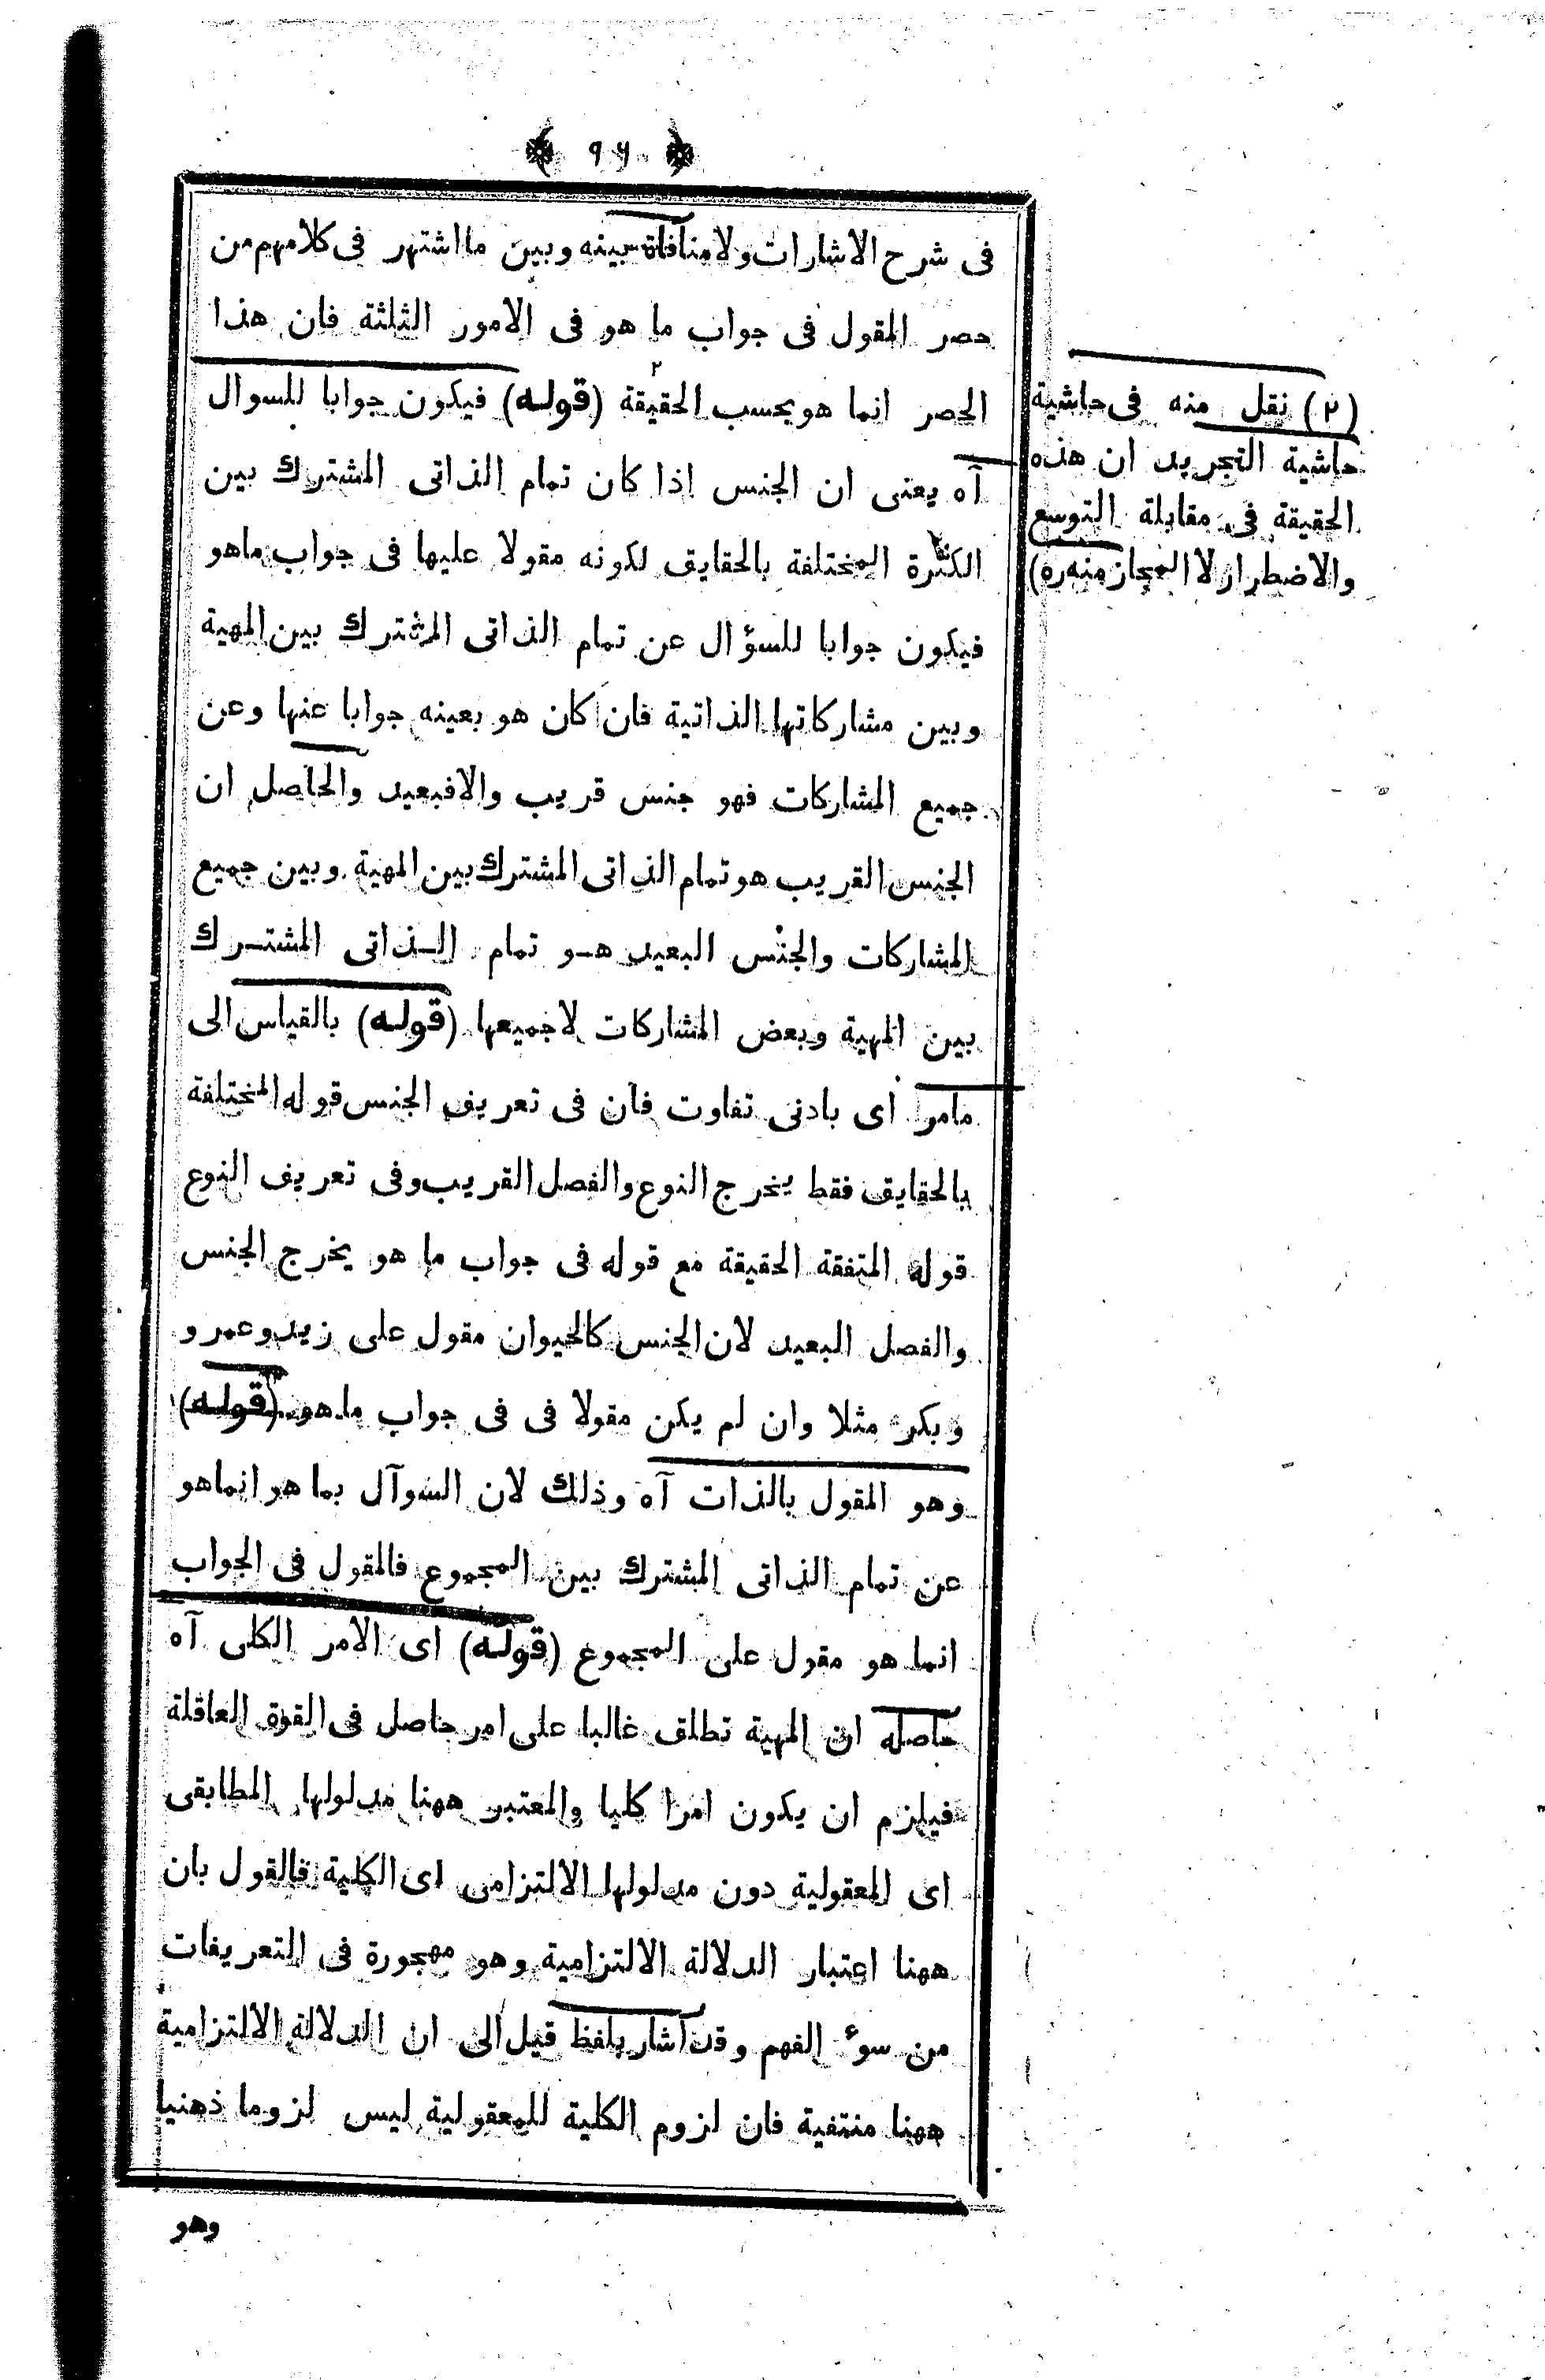 ٩٦
فى شرح الاشارات ولا منافاة بينه وبين ما اشتهر فى كلامهم من
حصر المقول فى جواب ما هو فى الامور الثلثة فان هذا
الحصر انما هو بحسب الحقيقة ٢ (قوله) فيكون جوابا للسوال
آه يعنى ان الجنس اذا كان تمام الذاتى المشترك بين
الكثرة المختلفة بالحقايق لكونه مقولا عليها فى جواب ماهو
فيكون جوابا للسؤال عن تمام الذاتى المشترك بين المهية
وبين مشاركاتها الذاتية فان كان هو بعينه جوابا عنها وعن
جميع المشاركات فهو جنس قريب والافبعيد والحاصل ان
الجنس القريب هو تمام الذاتى المشترك بين المهية وبين جميع
المشاركات والجنس البعيد هو تمام الذاتى المشترك
بين المهية وبعض المشاركات لاجميعها (قوله) بالقياس الى
مامر اى بادنى تفاوت فان فى تعريف الجنس قوله المختلفة
بالحقايق فقط يخرج النوع والفصل القريب وفى تعريف النوع
قوله المتفقة الحقيقة مع قوله فى جواب ما هو يخرج الجنس
والفصل البعيد لان الجنس كالحيوان مقول على زيد وعمرو
وبكر مثلا وان لم يكن مقولا فى فى جواب ما هو (قوله)
وهو المقول بالذات آه وذلك لان السوآل بما هو انماهو
عن تمام الذاتى المشترك بين المجموع فالمقول فى الجواب
انما هو مقول على المجموع (قوله) اى الامر الكلى آه
حاصله ان المهية تطلق غالبا على امر حاصل فى القوة العاقلة
فيلزم ان يكون امرا كليا والمعتبر ههنا مدلولها المطابقى
اى المعقولية دون مدلولها الالتزامى اى الكلية فالقول بان
ههنا اعتبار الدلالة الالتزامية وهو مهجورة فى التعريفات
من سوء الفهم وقد اشار بلفظ قيل الى ان الدلالة الالتزامية
ههنا منتفية فان لزوم الكلية للمعقولية ليس لزوما ذهنيا
وهو
(٢) نقل منه فى حاشية
حاشية التجريد ان هذه
الحقيقة فى مقابلة التوسع
والاضطرار لا المجاز منه ره)